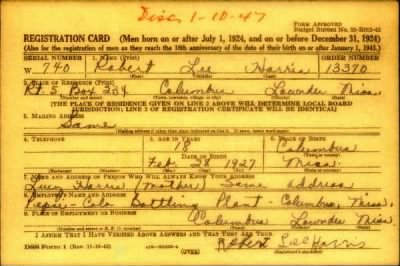 Disc 1-10-47
FORM APPROVED
Budget Bureau No. 33-R012-42
REGISTRATION CARD (Men born on or after July 1, 1924, and on or before December 31, 1924)
(Also for the registration of men as they reach the 18th anniversary of the date of their birth on or after January 1, 1943.)
SERIAL NUMBER 1. NAME (Print) ORDER NUMBER
W 740 Robert Lee Harris 13370
(First) (Middle) (Last)
2. PLACE OF RESIDENCE (Print)
Rt. 5 Box 234 Columbus Lowndes Miss.
(Number and street) (Town, township, village, or city) (County) (State)
[THE PLACE OF RESIDENCE GIVEN ON LINE 2 ABOVE WILL DETERMINE LOCAL BOARD
JURISDICTION; LINE 2 OF REGISTRATION CERTIFICATE WILL BE IDENTICAL]
3. MAILING ADDRESS
Same
[Mailing address if other than place indicated on line 2. If same, insert word same]
4. TELEPHONE 5. AGE IN YEARS 6. PLACE OF BIRTH
18 Columbus
DATE OF BIRTH
Feb. 28 1927 Miss.
7. NAME AND ADDRESS OF PERSON WHO WILL ALWAYS KNOW YOUR ADDRESS
Lucy Harris (Mother) Same address
8. EMPLOYER'S NAME AND ADDRESS
Pepsi-Cola Bottling Plant - Columbus, Miss.
9. PLACE OF EMPLOYMENT OR BUSINESS
Columbus Lowndes Miss.
I AFFIRM THAT I HAVE VERIFIED ABOVE ANSWERS AND THAT THEY ARE TRUE.
DSS Form 1 (Rev. 11-16-42) (OVER) Robert Lee Harris